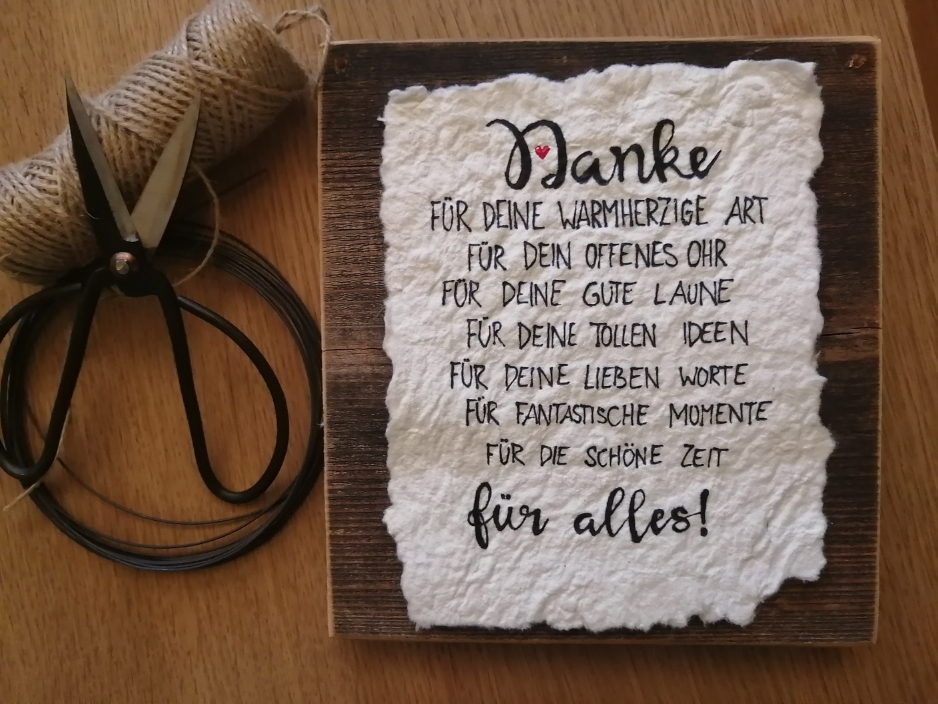 Danke
FÜR DEINE WARMHERZIGE ART
FÜR DEIN OFFENES OHR
FÜR DEINE GUTE LAUNE
FÜR DEINE TOLLEN IDEEN
FÜR DEINE LIEBEN WORTE
FÜR FANTASTISCHE MOMENTE
FÜR DIE SCHÖNE ZEIT
für alles!